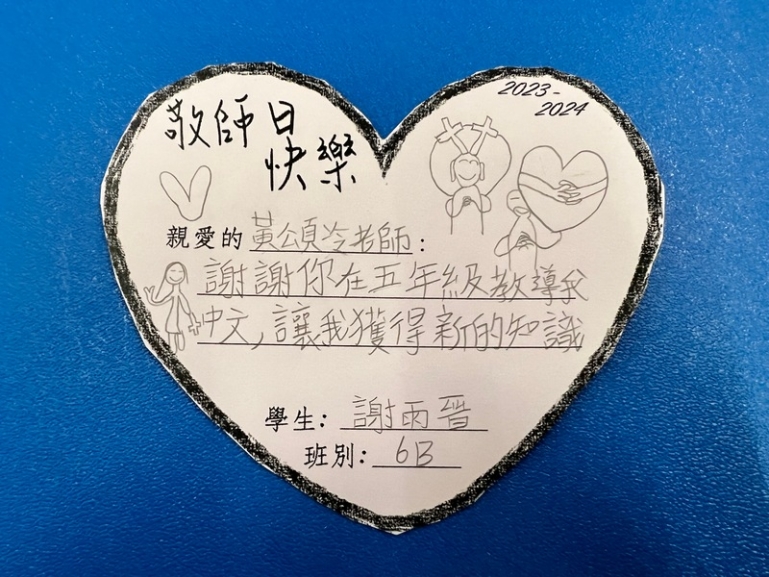 2023-
2024
敬師日
快樂
親愛的黃頌泠老師：
謝謝你在五年級教導我
中文，讓我獲得新的知識
學生：謝雨晉
班別：6B